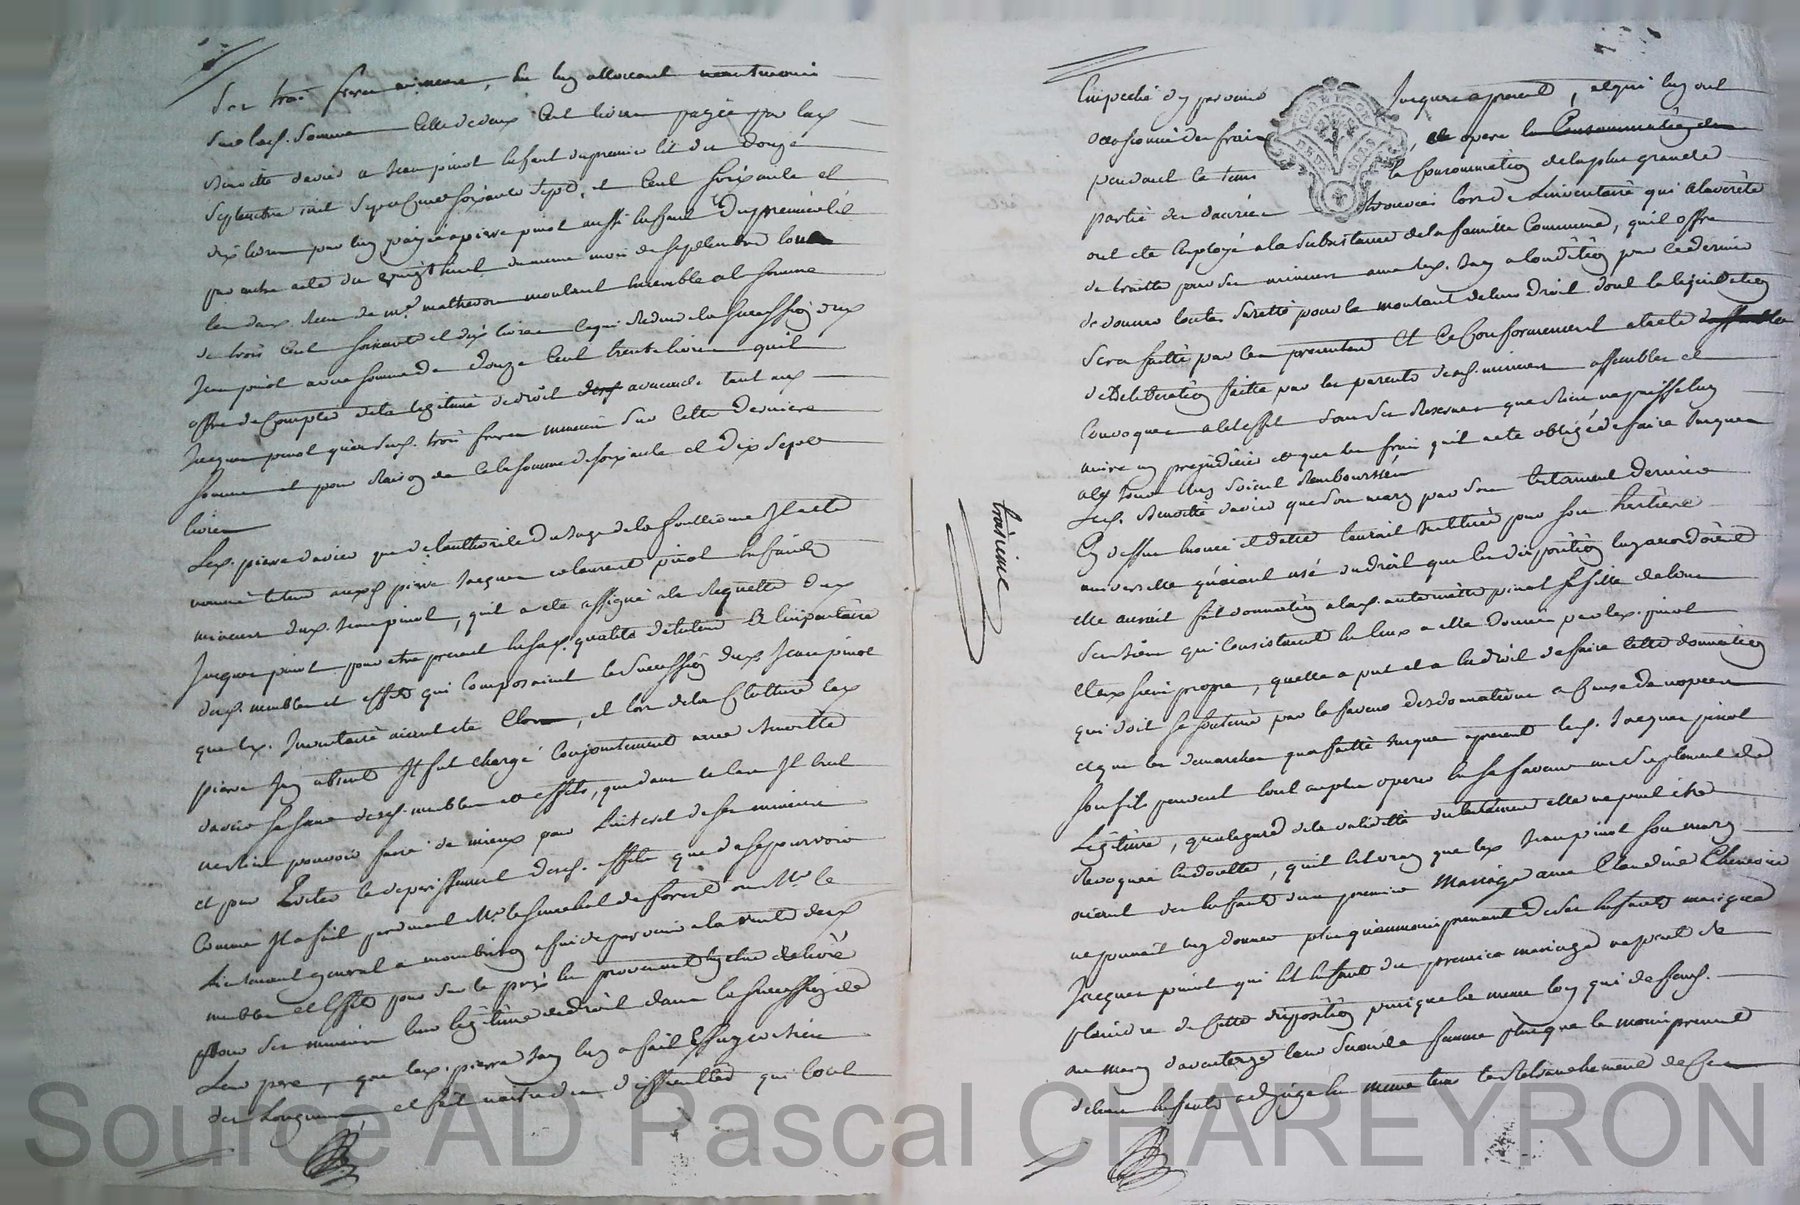 ses trois freres mineurs, en luy allouant neantmoins
sur lad. somme celle de deux cent livres payée par lad.
Benoitte davier a Jean pinot enfant du premier lit du douze
septembre mil sept cent soixante sept, et cent soixante et
dix livres par luy payée a pierre pinot aussi enfant du premier lit
par autre acte du vingt huit du meme mois de septembre
les deux reçu de me mathevon montant ensemble a la somme
de trois cent soixante et dix livres ce qui reduit la succession dud.
Jean pinot a une somme de douze cent trente livres qu'il
offre de compter de la legitime de droit a un chacun tant aux
Jacques pinot qu'a sesd. trois freres mineurs sur cette derniere
somme et pour raison de ce la somme de soixante et dix sept
livres
Led. pierre davier que de l'authorité du Juge de la fouillouse Il a été
nommé tuteur auxd. pierre Jacques et laurent pinot enfants
mineurs dud. Jean pinot, qu'il a été assigné a la Requette dud.
Jacques pinot pour etre present en sad. qualité de tuteur a l'inventaire
desd. meubles et effets qui composaient la succession dud. Jean pinot
que led. Inventaire ayant été clos, et lors de la cloture led.
pierre Jay absent Il fut chargé conjointement avec Benoitte
davier sa femme desd. meubles et effets, que dans ce cas Il crut
ne rien pouvoir faire de mieux pour l'interet de ses mineurs
et pour Eviter le deperissement desd. effets que de se pourvoir
comme Il a fait pardevant Mr le senechal de forest ou Mr le
Lieutenant general a montbrison afin de parvenir a la vente desd.
meubles et effets pour sur le prix en provenant etre delivré
pour ses mineurs leur legitime de droit dans la succession de
Leur pere, que led. pierre Jay luy a fait Essuyer
des longueurs, et fait naitre des difficultés qui l'ont
troisieme
Empeché d'y parvenir Jusques a present, et qui luy ont
occasionné des frais, et opere
pendant ce tems la consommation de la plus grande
partie des denrées trouvées lors de l'inventaire qui a la verité
ont été Employé a la subsistance de la famille commune, qu'il offre
de traitter pour ses mineurs avec led. Jay a condition par ce dernier
de donner toutes suretés pour le montant de leurs droit dont la liquidation
sera faitte par ces presentes Et ce conformement a l'acte
de Deliberation faitte par les parents desd. mineurs assemblés et
convoqués a cet effet sans ses Reserves que Rien ne puisse luy
nuire ny prejudicier et que les frais qu'il a été obligé de faire Jusques
a ce Jour luy soient Remboursées
Lad. Benoitte davier que son mary par son testament dernier
cy dessus enoncé et datté l'aurait instituée pour son heritiere
universelle qu'ayant usé du droit que les disposition luy accordoient
elle aurait fait donnation a lad. antoinette pinot sa fille de tous
ses biens qui consistoient en ceux a elle donnés par led. pinot
et aux siens propre, quelle a put et a Endroit de faire cette donnation
qui doit se soutenir par la faveur des donnations a cause de nopces
et que les demarches qu'a faitte Jusques a present led. Jacques pinot
son fils peuvent tout au plus operer en sa faveur un suplement de
Legitime, qu'a legard de la validitté du testament elle ne peut etre
Revoquée en doutte, qu'il est vray que led. Jean pinot son mary
ayant des enfants d'un premier Mariage avec Claudine Chenevier
ne pouvait luy donner plus qu'au moins prenant de ses enfants mais que
Jacques pinot qui est enfant du premier mariage ne peut se
plaindre de cette disposition puisque la meme loy qui deffend
au mary d'avantager leur seconde femme plus que le moins prenant
de leurs enfants adjuge en meme tems le Retranchement de ces